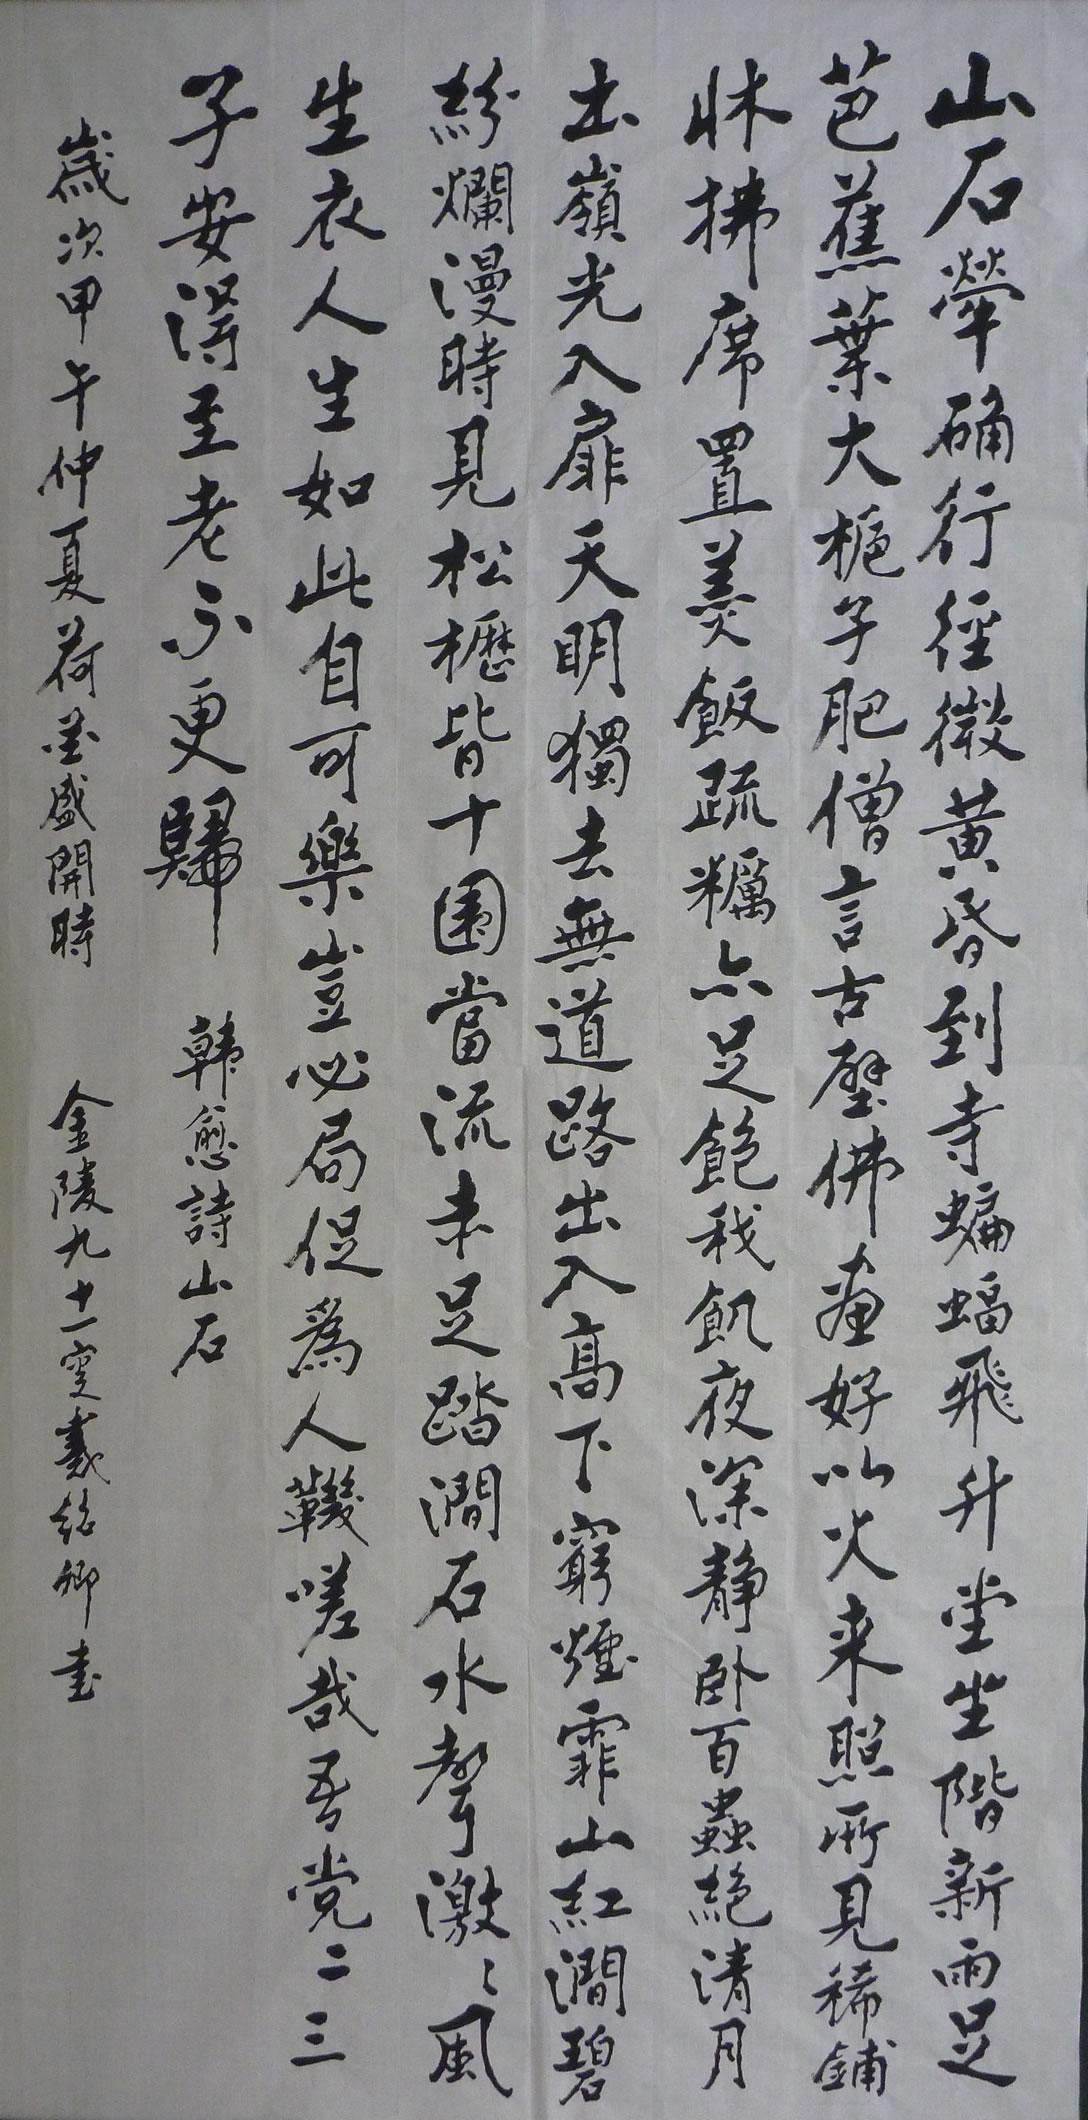 山石犖确行徑微黄昏到寺蝙蝠飛升堂坐階新雨足
芭蕉葉大梔子肥僧言古壁佛畫好以火来照所見稀鋪
牀拂席置羹飯疏糲亦足飽我飢夜深静卧百蟲絶清月
出嶺光入扉天明獨去無道路出入高下窮煙霏山紅澗碧
紛爛漫時見松櫪皆十圍當流赤足踏澗石水聲激々風
生衣人生如此自可樂豈必局促爲人鞿嗟哉吾党二三
子安得至老不更歸 韓愈詩山石
歲次甲午仲夏荷花盛開時 金陵九十一叟戴紹卿書